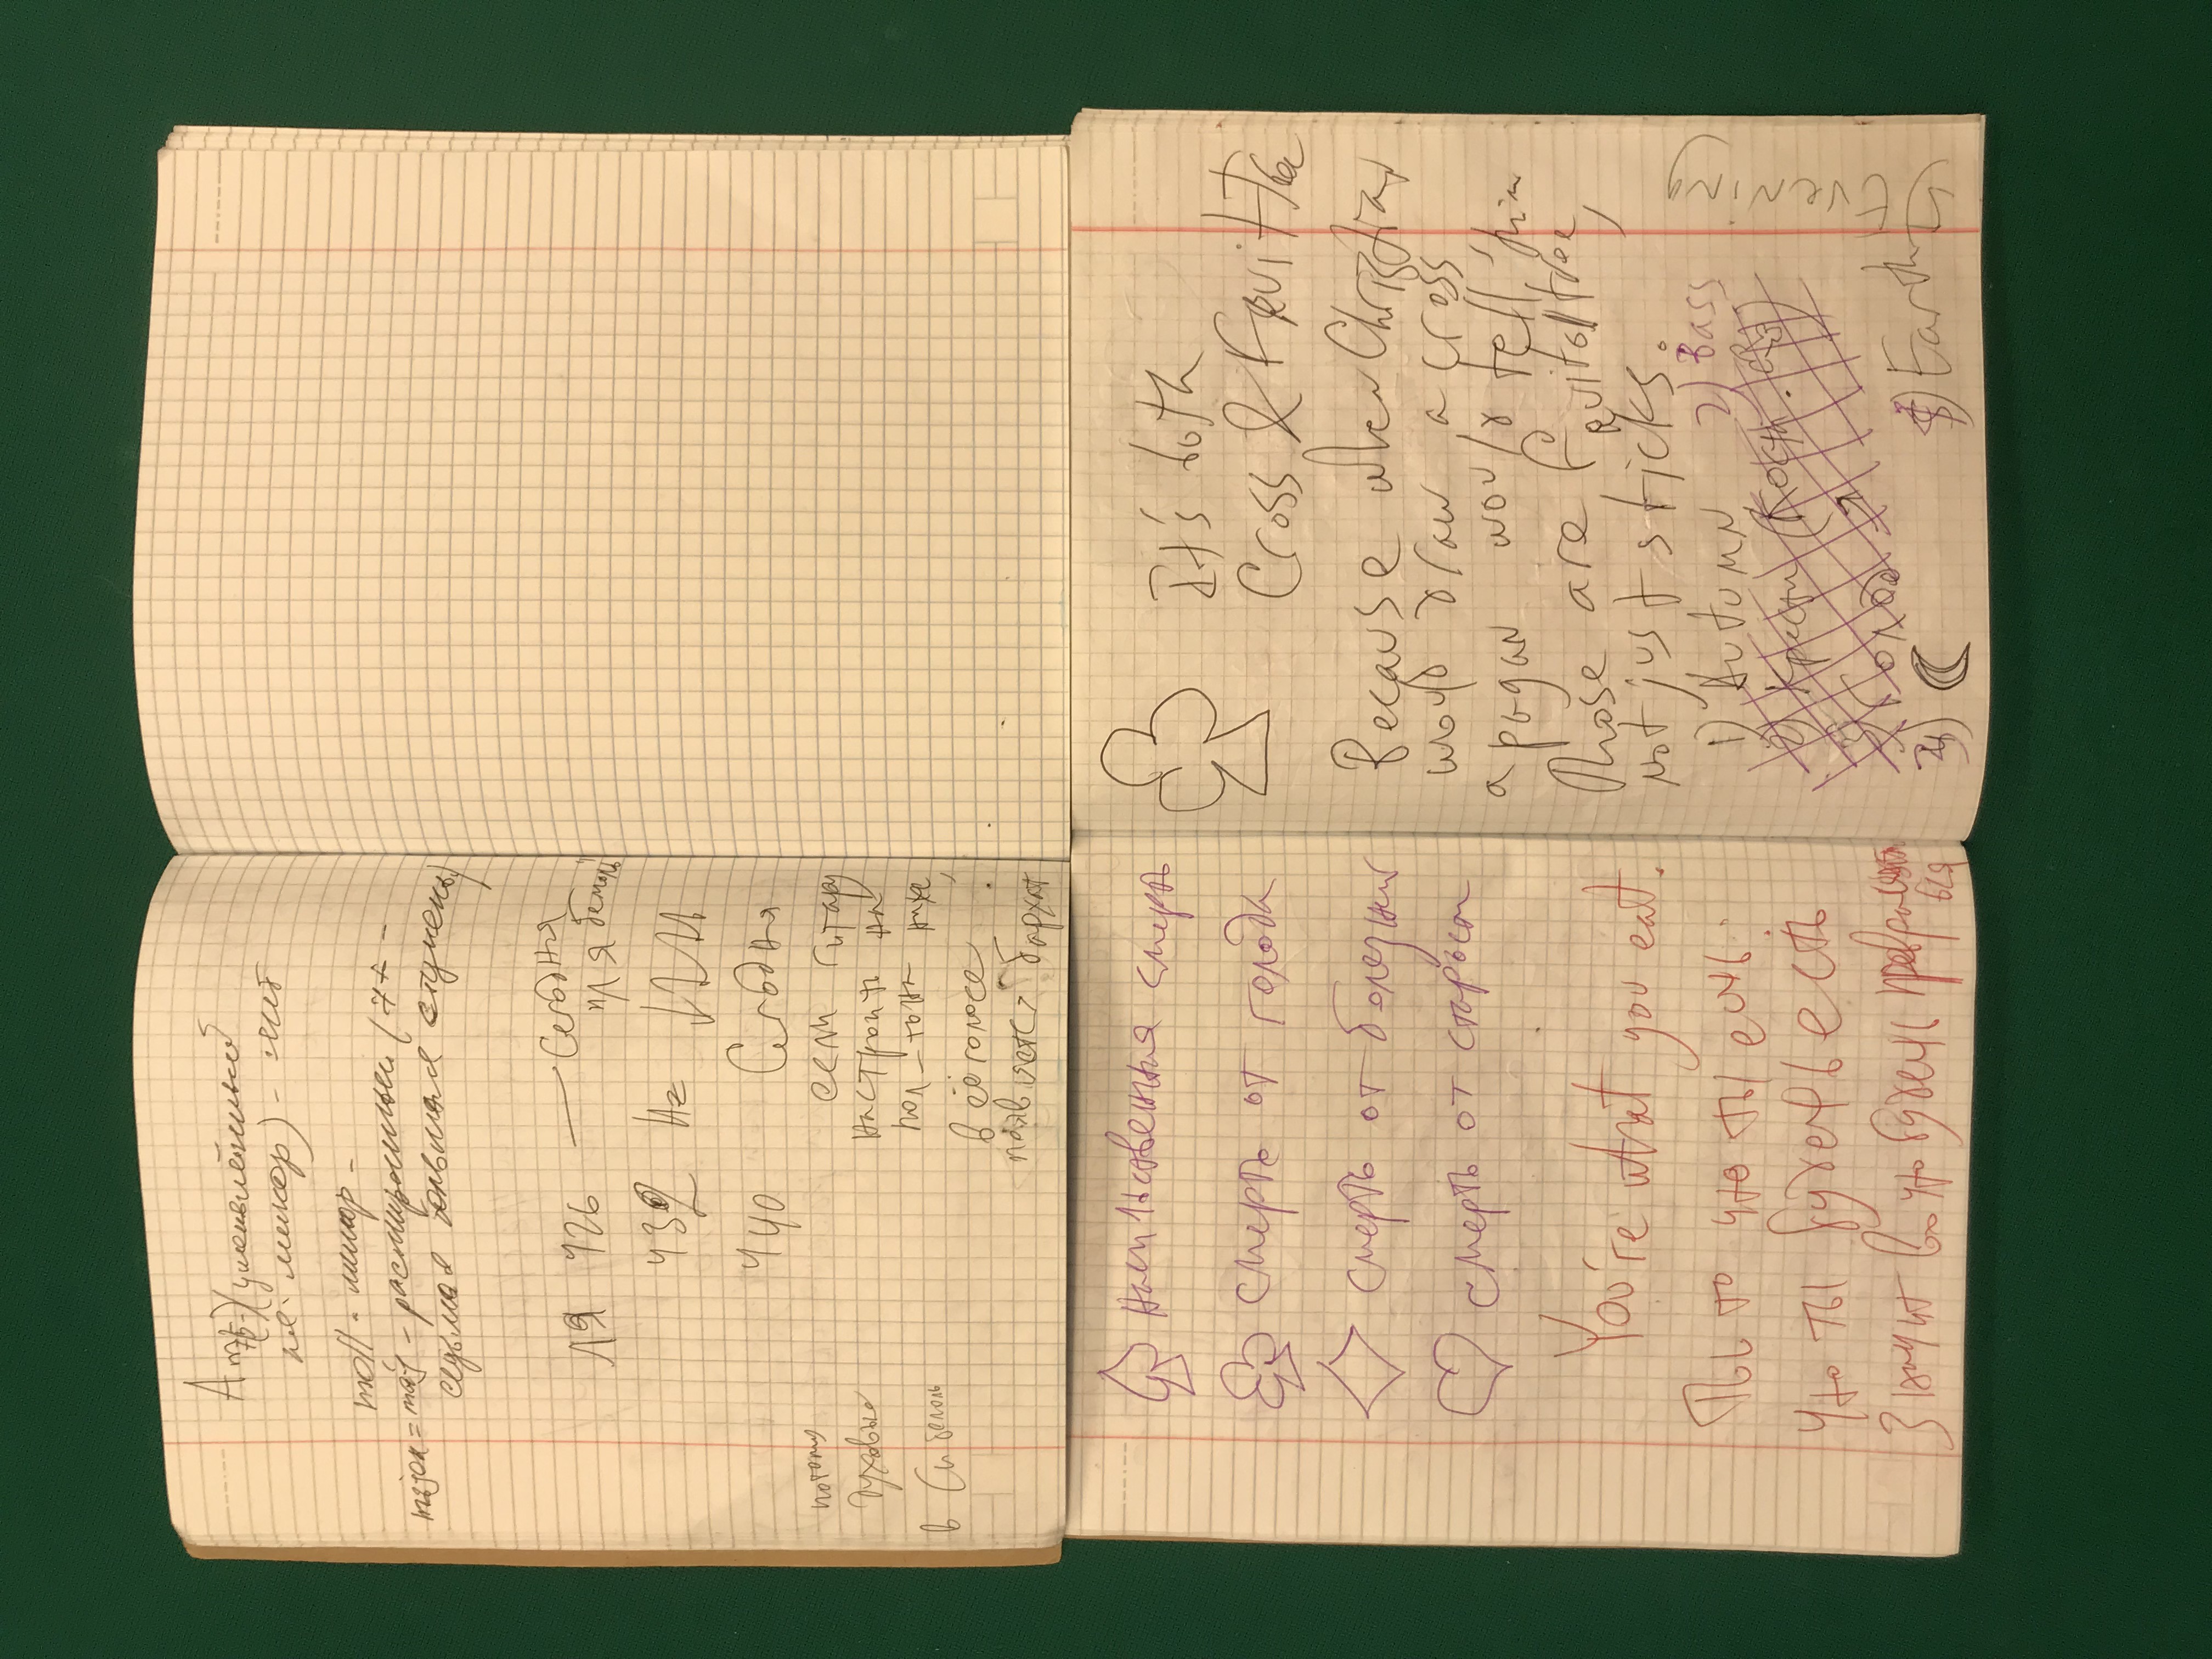 минор) -
moll - минор -
major = maj - расширенный (7+ -
седьмая большая ступень)
ЛЯ 426 — Сегодня
Ля бемоль
432 Hz
440 Сегодня
если гитару
настроить на
пол-тона ниже,
в её голосе
появляется бархат
духовые
в Си бемоль
насильственная смерть
смерть от голода
смерть от болезни
смерть от старости
You're what you eat.
Ты то что ты ешь.
Что ты будешь есть
Значит во что будешь превращать
ься
It's both
Cross &
Because when Christian
would draw a cross,
a pagan would tell him
Those are
not just sticks.
1) Autumn 2) Bass
2) Крести (Кости
3) Голод
3) 4) Earth
5) Evening